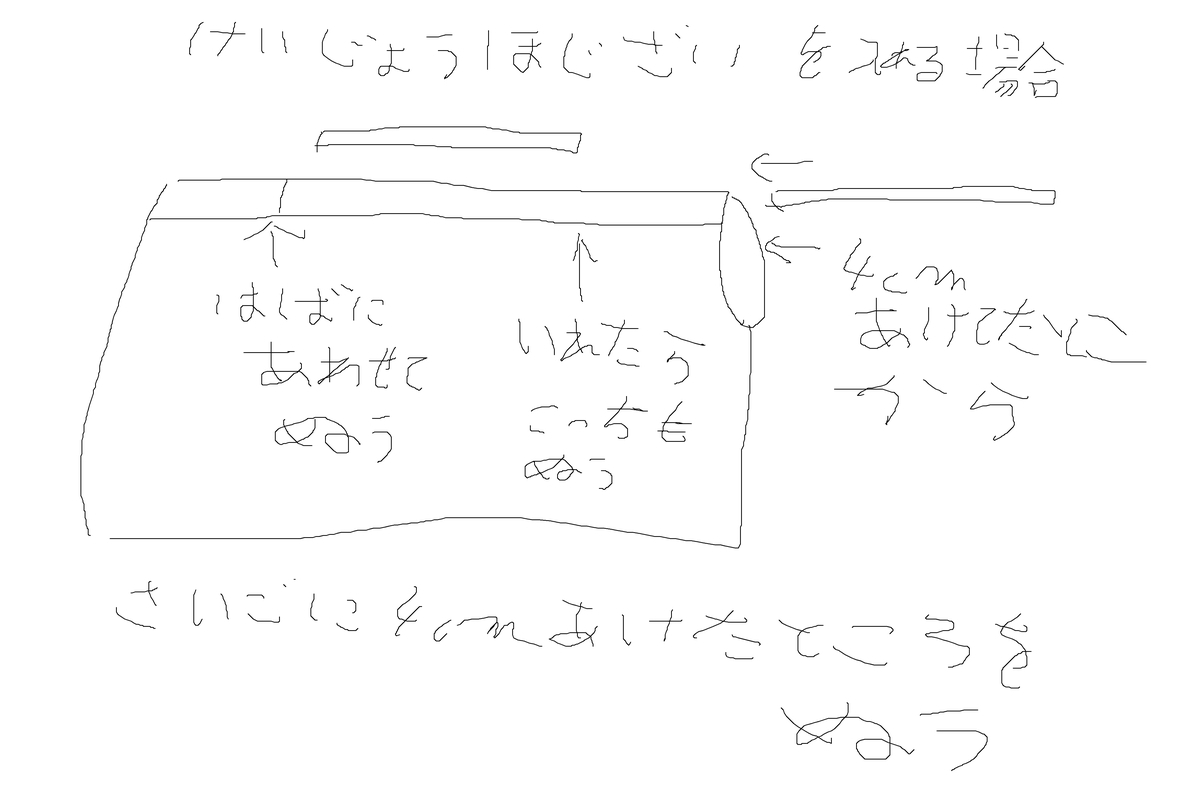 けいじょうほじざいを入れる場合
はしばに
あわせて
ぬう
いれたら
こっちも
ぬう
4cm
あけてたとこ
から
さいごに4cmあけたところを
ぬう